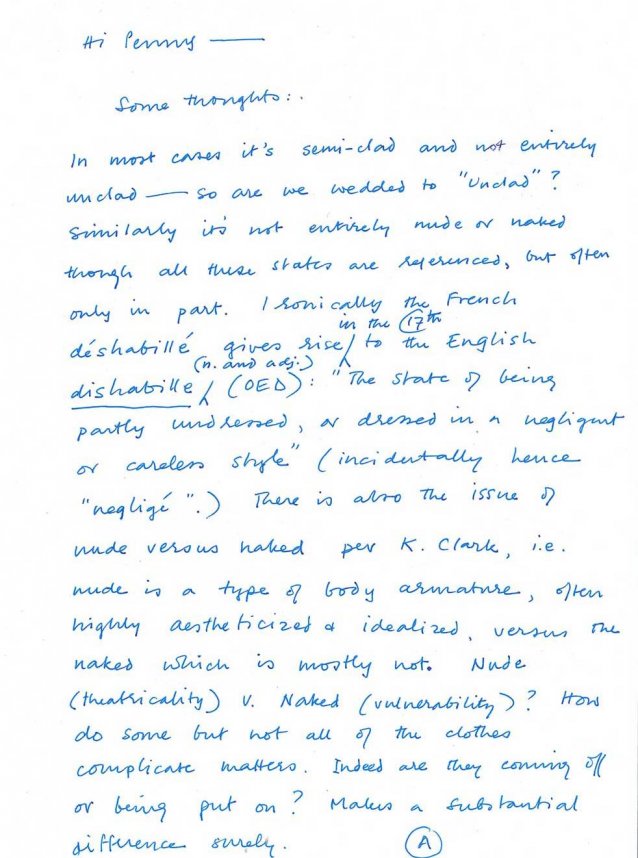 Hi Penny —
Some thoughts:.
In most cases it's semi-clad and not entirely
unclad — so are we wedded to "Unclad"?
Similarly it's not entirely nude or naked
though all these states are referenced, but often
only in part. Ironically the French
in the 17th
déshabillé gives rise to the English
(n. and adj.)
dishabille (OED): "The state of being
partly undressed, or dressed in a negligent
or careless style" (incidentally hence
"negligé".) There is also the issue of
nude versus naked per K. Clark, i.e.
nude is a type of body armature, often
highly aestheticized & idealized, versus the
naked which is mostly not. Nude
(theatricality) v. Naked (vulnerability)? How
do some but not all of the clothes
complicate matters. Indeed are they coming off
or being put on? Makes a substantial
difference surely. A